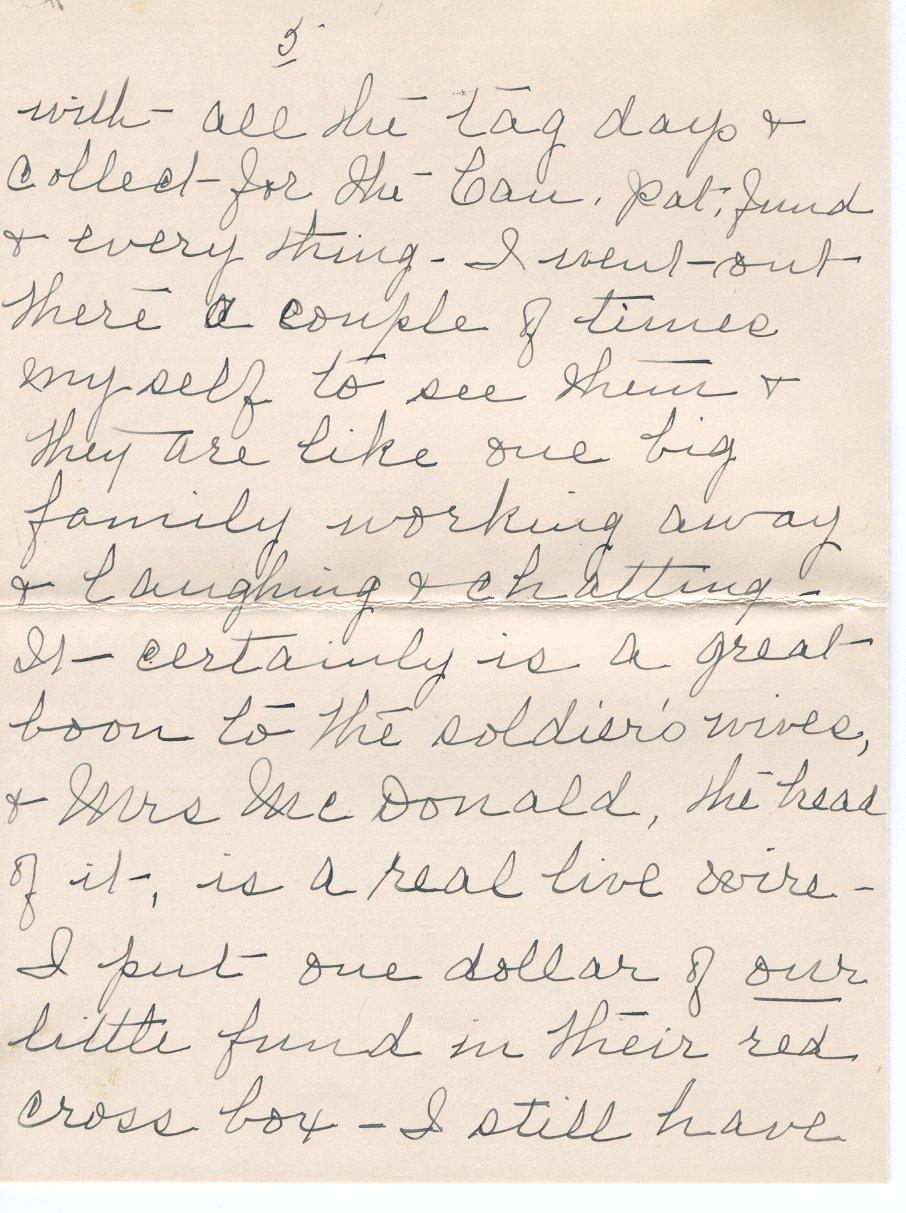 5
with all the tag days &
collect for the Can. Pat. fund
& every thing - I went out
there a couple of times
myself to see them &
they are like one big
family working away
& laughing & chatting -
It certainly is a great
boon to the soldier's wives,
& Mrs McDonald, the head
of it, is a real live wire -
I put one dollar of our
little fund in their red
cross box - I still have